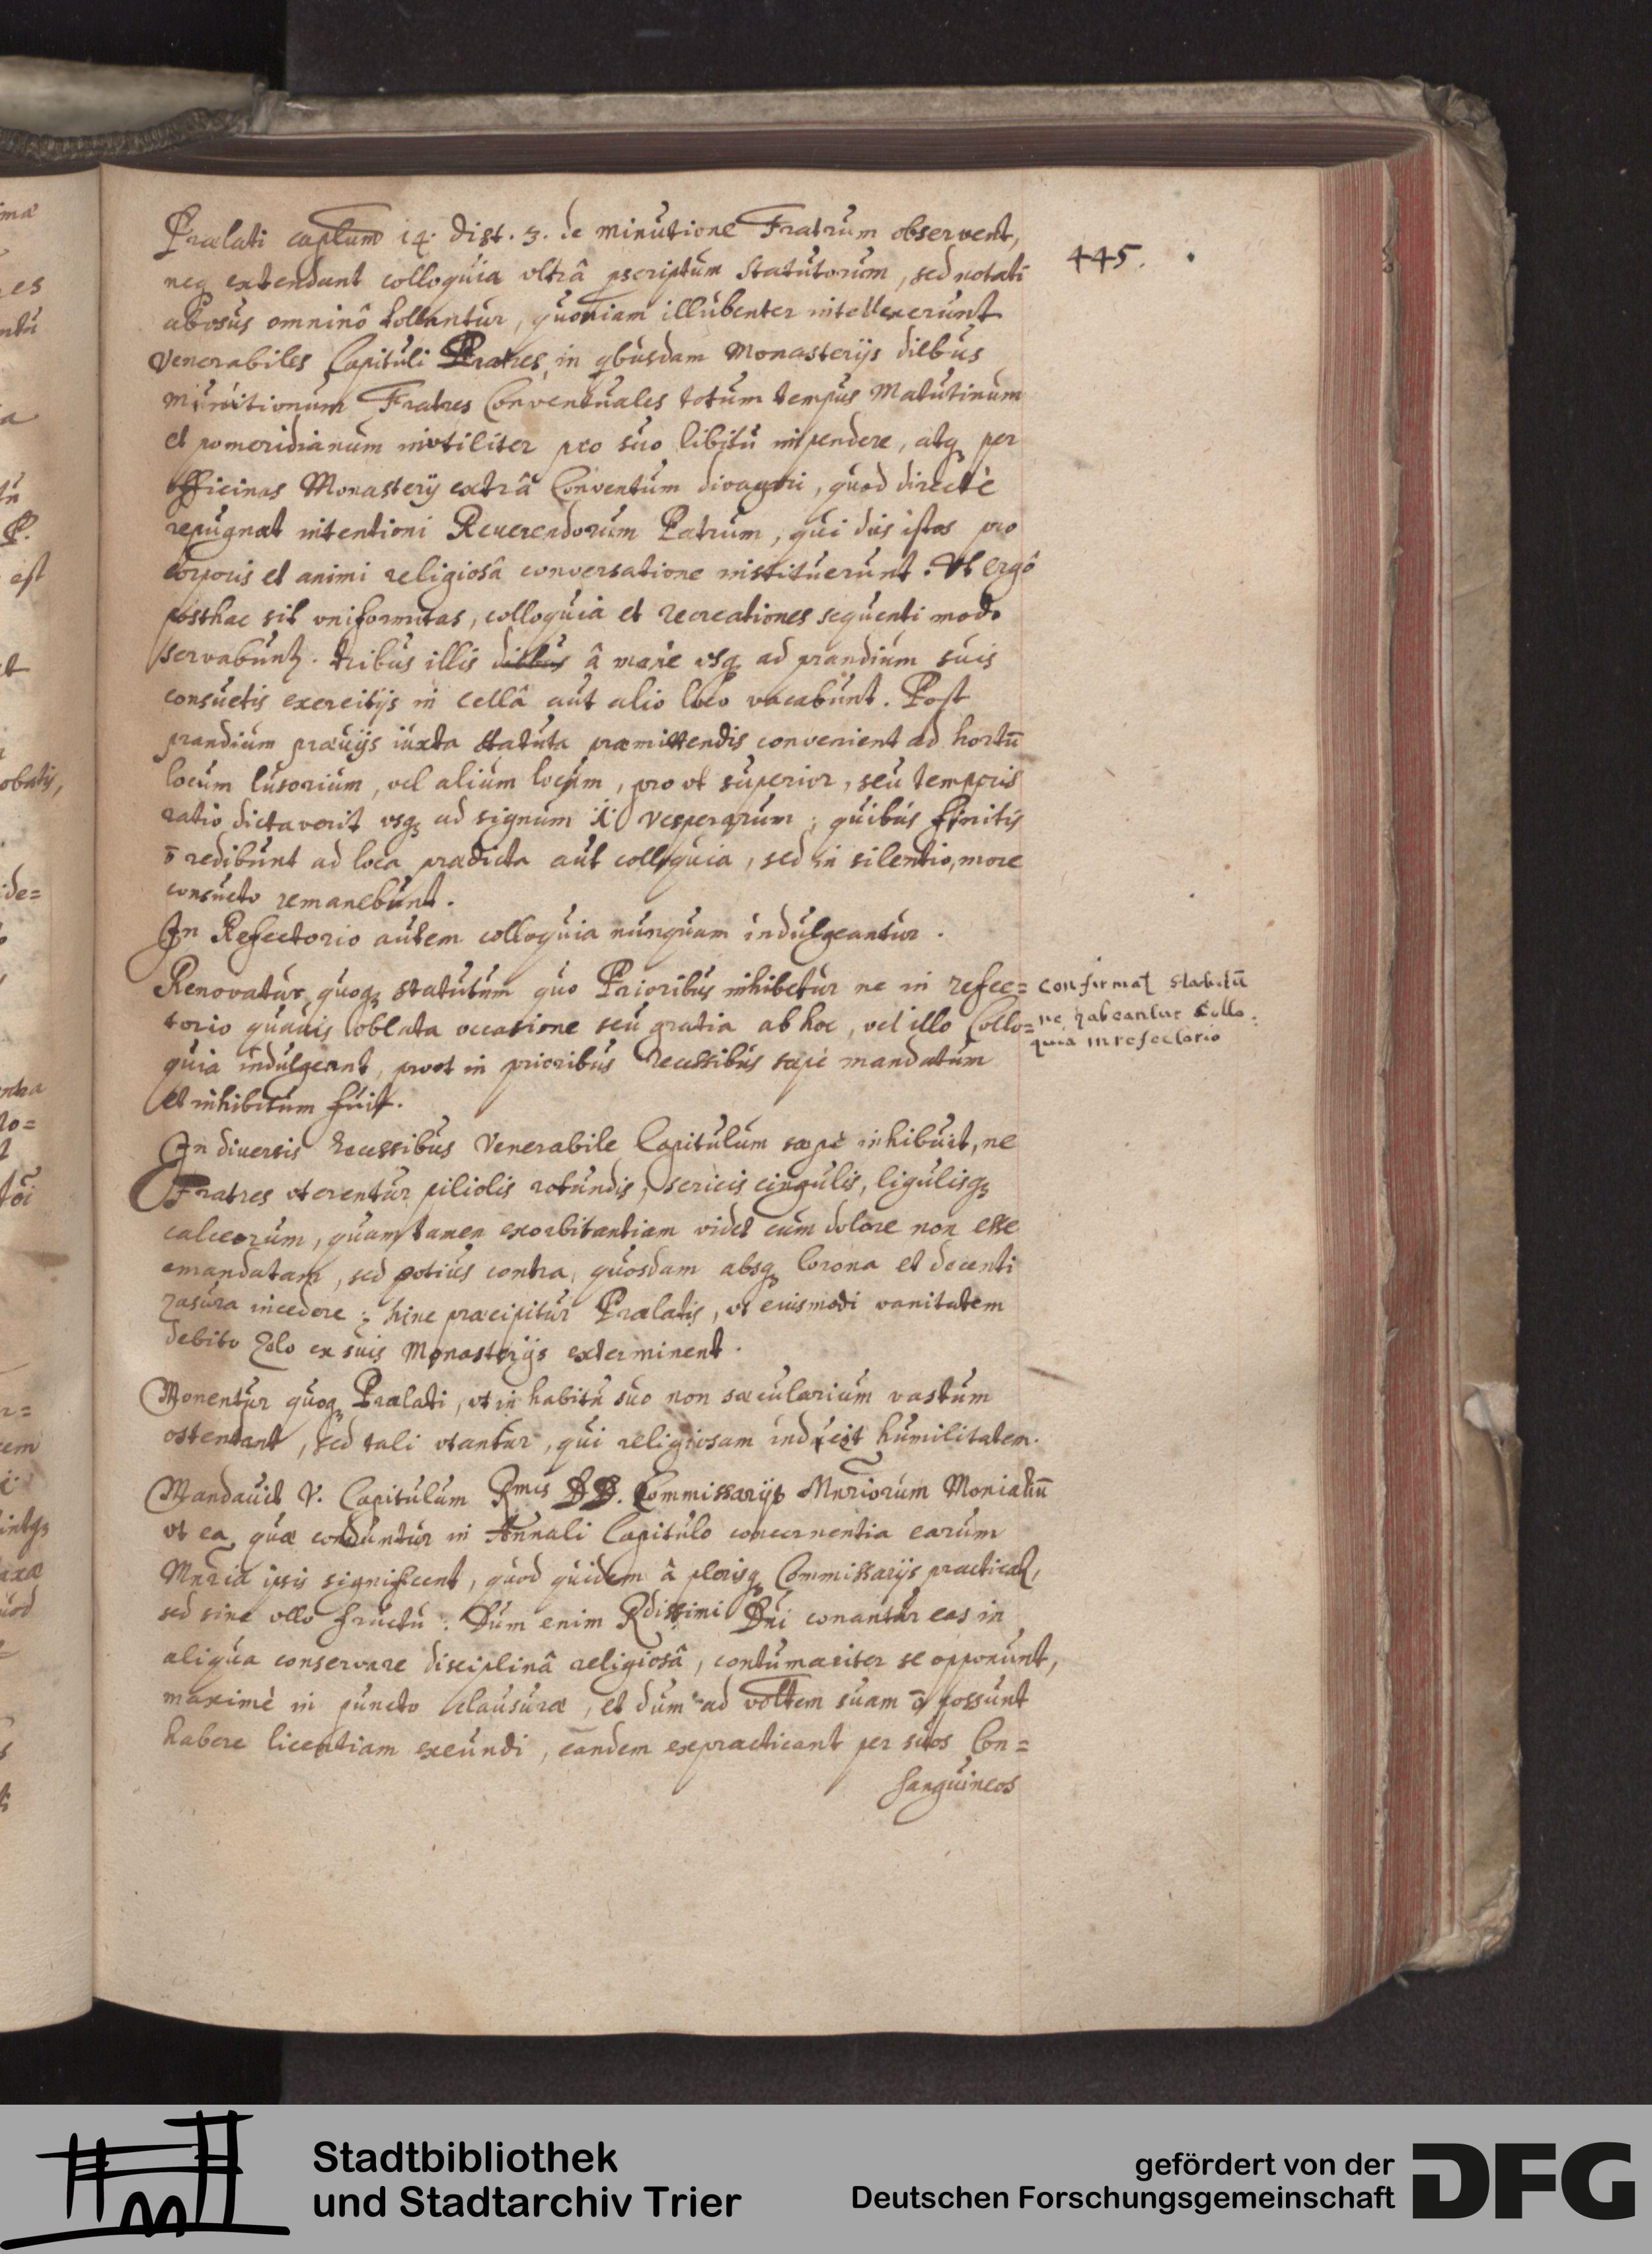 445.
Prælati caplum 14. Dist. 3. de minutione Fratrum observent,
neq̨ extendant colloquia vltrâ pscriptum Statutorum, sed notati
abusus omninô tollantur, quoniam illubenter intellexerunt
Venerabiles Capituli Patres, in qbusdam Monasterijs diebus
minutionum Fratres Conventuales totum tempus Matutinum
et pomeridianum invtiliter pro suo libitu inpendere, atq̨ per
officinas Monasterij extrâ Conventum divagari, quod directè
repugnat intentioni Reuerendorum Patrum, qui dies istos pro
corporis et animi religiosâ conversatione instituerunt. Vt ergô
posthac sit vniformitas, colloquia et recreationes sequenti modo
servabunt. tribus illis diebus â mane vsq̨ ad prandium suis
consuetis exercitijs in cellâ aut alio loco vacabunt. Post
prandium præuijs iuxta statuta præmittendis convenient ad hortū
locum lusorium, vel alium locum, pro vt superior, seu temporis
ratio dictaverit vsq̨ ad signum Vesperarum; quibus finitis
ō redibunt ad loca prædicta aut colloquia, sed in silentio, more
consueto remanebunt.
In Refectorio autem colloquia nunquam indulgeantur.
Renovatur quoq̨ statutum quo Prioribus inhibetur ne in refec=
torio quauis oblata occasione seu gratia ab hoc, vel illo Collo=
quia indulgeant, provt in prioribus recessibus sæpè mandatum
et inhibitum fuit.
confirmat Statutū
ne habeantur Collo:
quia in refectorio
In diuersis recessibus Venerabile Capitulum sæpè inhibuit, ne
Fratres vterentur piliolis rotundis, sericis cingulis, ligulisq̨
calceorum, quam tamen exorbitantiam videt cum dolore non esse
emandatam, sed potius contra, quosdam absq̨ Corona et decenti
rasura incedere; hinc præcipitur Prælatis, vt eiusmodi vanitatem
debito Zelo ex suis Monasterijs exterminent.
Monentur quoq̨ Prælati, vt in habitu suo non sæcularium vastum
ostentant, sed tali vtantur, qui religiosam indueit humilitatem.
Mandauit V. Capitulum Rmis DD. Commissarijs Mnriorum Monialiū
vt ea quæ conduntur in Annali Capitulo concernentia earum
Mnria ipsis significent, quod quidem â plerisq̨ Commissarijs practicat,
sed sine vllo fructu: Dum enim Rdissimi Dni conantur eas in
aliqua conservare disciplinâ religiosâ, contumaciter se opponunt,
maximè in puncto clausuræ, et dum ad voltem suam ō possunt
habere licentiam exeundi, eandem expracticant per suos Con=
sanguineos
Stadtbibliothek
und Stadtarchiv Trier
gefördert von der
Deutschen Forschungsgemeinschaft
DFG